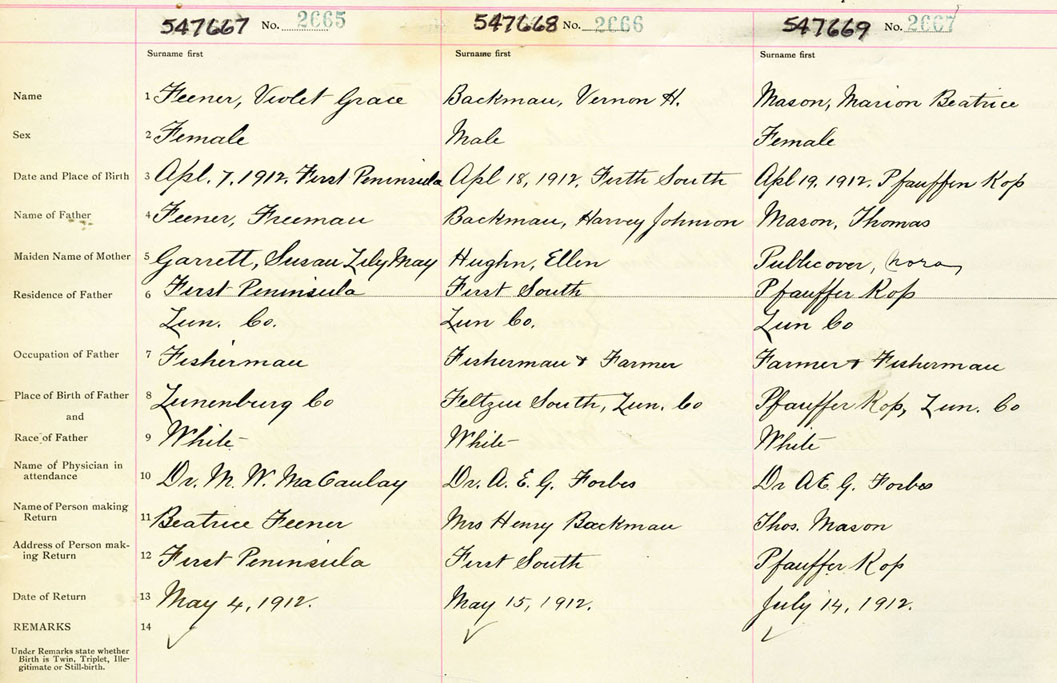 547667 No. 2665 547668 No. 2666 547669 No. 2667
Surname first Surname first Surname first
Name 1 Feener, Violet Grace Backman, Vernon H. Mason, Marion Beatrice
Sex 2 Female Male Female
Date and Place of Birth 3 Apl. 7, 1912. First Peninsula Apl 18, 1912. Firth South Apl 19, 1912. Pfauffin Kop
Name of Father 4 Feener, Freeman Backman, Harvey Johnson Mason, Thomas
Maiden Name of Mother 5 Garrett, Susan Lily May Hughn, Ellen Publicover, Nora
Residence of Father 6 First Peninsula First South Pfauffer Kop
Lun. Co. Lun Co. Lun Co
Occupation of Father 7 Fisherman Fisherman & Farmer Farmer & Fisherman
Place of Birth of Father 8 Lunenburg Co Feltzen South, Lun. Co Pfauffer Kop, Lun. Co
and
Race of Father 9 White White White
Name of Physician in
attendance 10 Dr. M. W. MaCaulay Dr. A. E. G. Forbes Dr A E. G. Forbes
Name of Person making
Return 11 Beatrice Feener Mrs Henry Backman Thos. Mason
Address of Person mak-
ing Return 12 First Peninsula First South Pfauffer Kop
Date of Return 13 May 4, 1912. May 15, 1912. July 14, 1912.
REMARKS 14
Under Remarks state whether
Birth is Twin, Triplet, Ille-
gitimate or Still-birth.